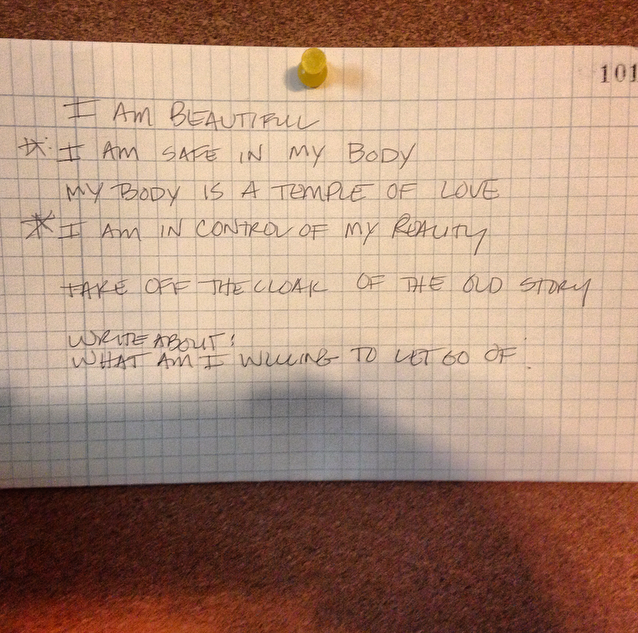 101
I AM BEAUTIFUL
* I AM SAFE IN MY BODY
MY BODY IS A TEMPLE OF LOVE
* I AM IN CONTROL OF MY REALITY
TAKE OFF THE CLOAK OF THE OLD STORY
WRITE ABOUT:
WHAT AM I WILLING TO LET GO OF?